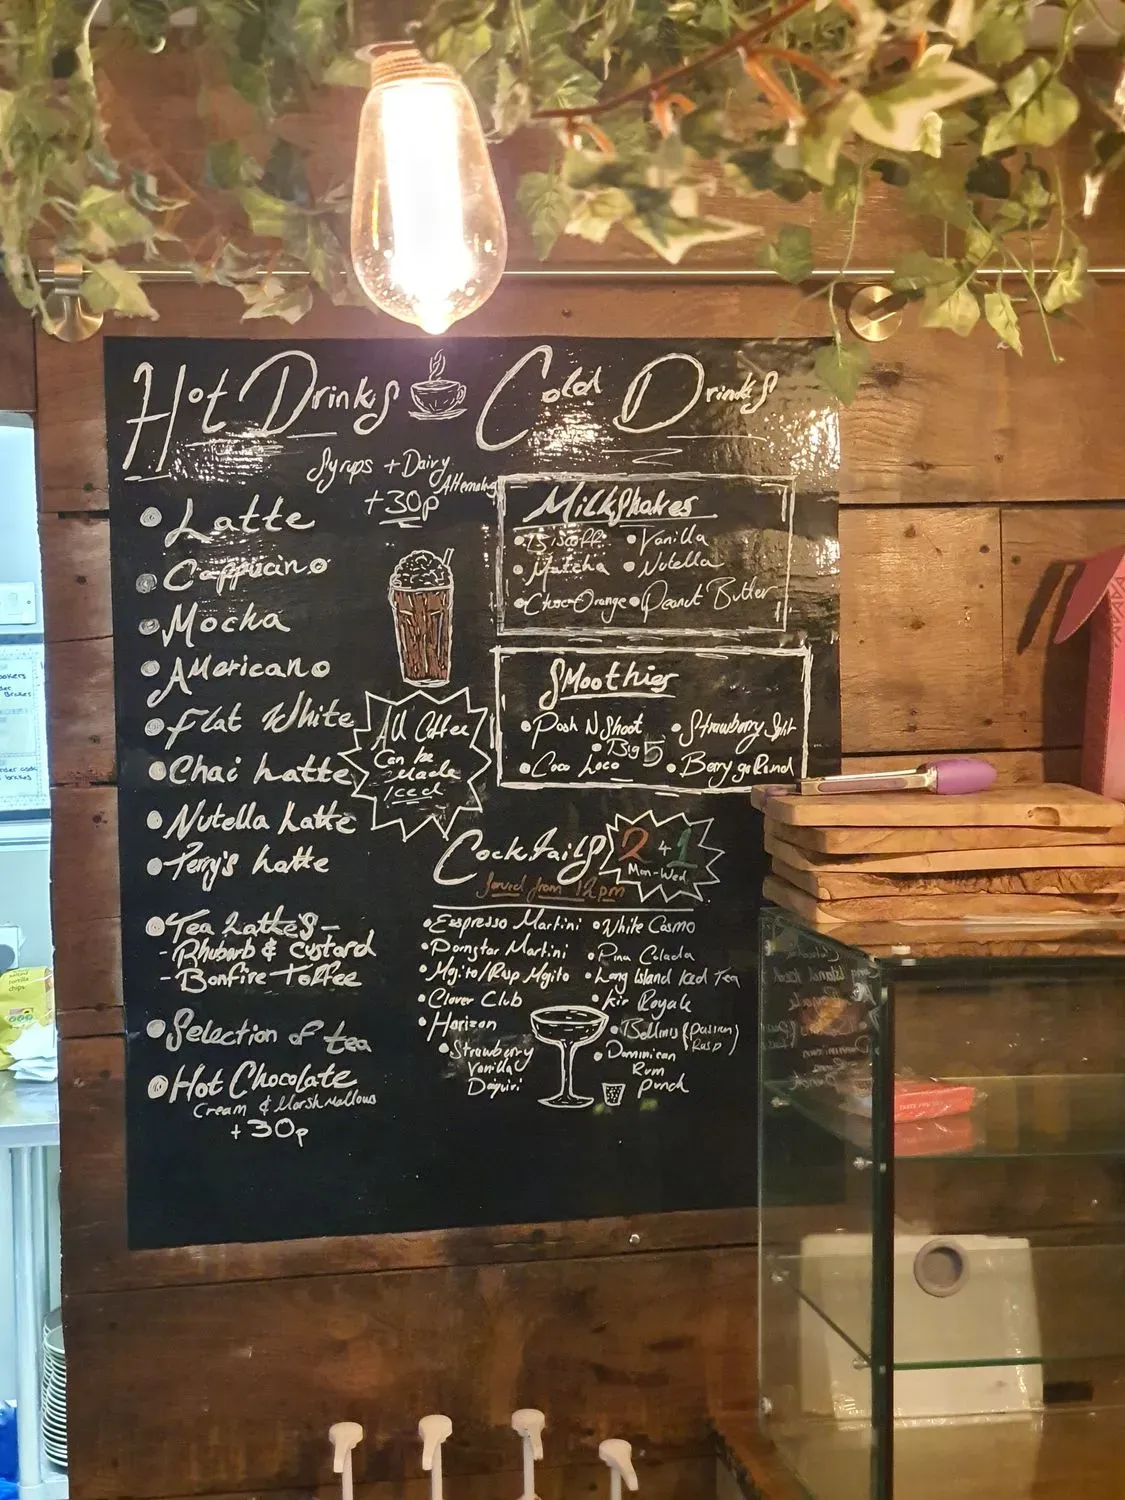 Hot Drinks
Syrups + Dairy
Alternatives
+30p
• Latte
• Cappucino
• Mocha
• Americano
• Flat White
• Chai Latte
• Nutella Latte
• Terry's Latte
• Tea Latte's -
- Rhubarb & Custard
- Bonfire Toffee
• Selection of tea
• Hot Chocolate
Cream & Marshmallows
+30p
All Coffee
Can be
Made
Iced
Cold Drinks
Milkshakes
• Biscoff • Vanilla
• Matcha • Nutella
• Choc-Orange • Peanut Butter
Smoothies
• Pash N Shoot • Strawberry Split
• Big 5
• Coco Loco • Berry go Round
Cocktails
2 4 1
Mon-Wed
Served from 12pm
• Espresso Martini • White Cosmo
• Pornstar Martini • Pina Colada
• Mojito/Rasp Mojito • Long Island Iced Tea
• Clover Club • Kir Royale
• Horizon • Bellinis (Passion
Rasp)
• Strawberry
Vanilla
Daiquiri
• Dominican
Rum
Punch
tortilla
chips